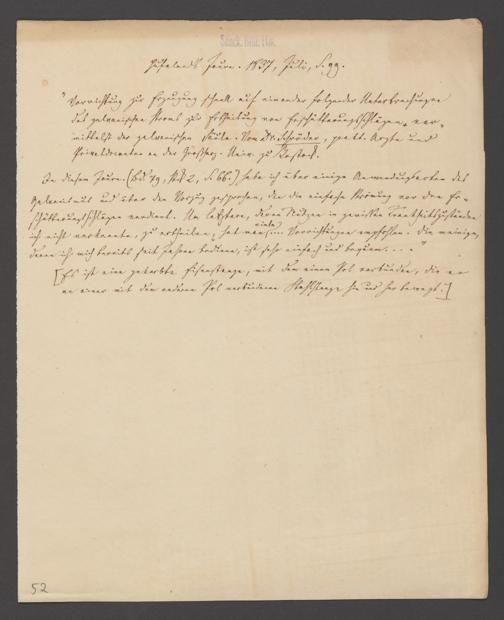 Hufelands Journ. 1837, Juli, S. 99.
"Vorrichtung zur Erzeugung schnell auf einander folgender Unterbrechungen
des galvanischen Stroms zur Ertheilung von Erschütterungsschlägen, ver-
mittelst der galvanischen Säule. Von Dr. Schröder, prakt. Arzte und
Privatdocenten an der Großherz. Univ. zu Rostock.
In diesem Journ. (Bd 79, St 2, S. 66.) habe ich über einige Anwendungsarten des
Galvanismus und über den Vorzug gesprochen, den die einfache Strömung vor den Er-
schütterungsschlägen verdient. Um letztere, deren Nutzen in gewissen Krankheitszuständen
ich nicht verkenne, zu ertheilen, hat man Vorrichtungen empfohlen. Die meinige,
deren ich mich bereits seit Jahren bediene, ist sehr einfach und bequem. . . . "
[Es ist eine gekerbte Eisenstange, mit dem einen Pol verbunden, die er
an einer mit dem anderen Pol verbundenen Stahlstange hin und her bewegt.]
52